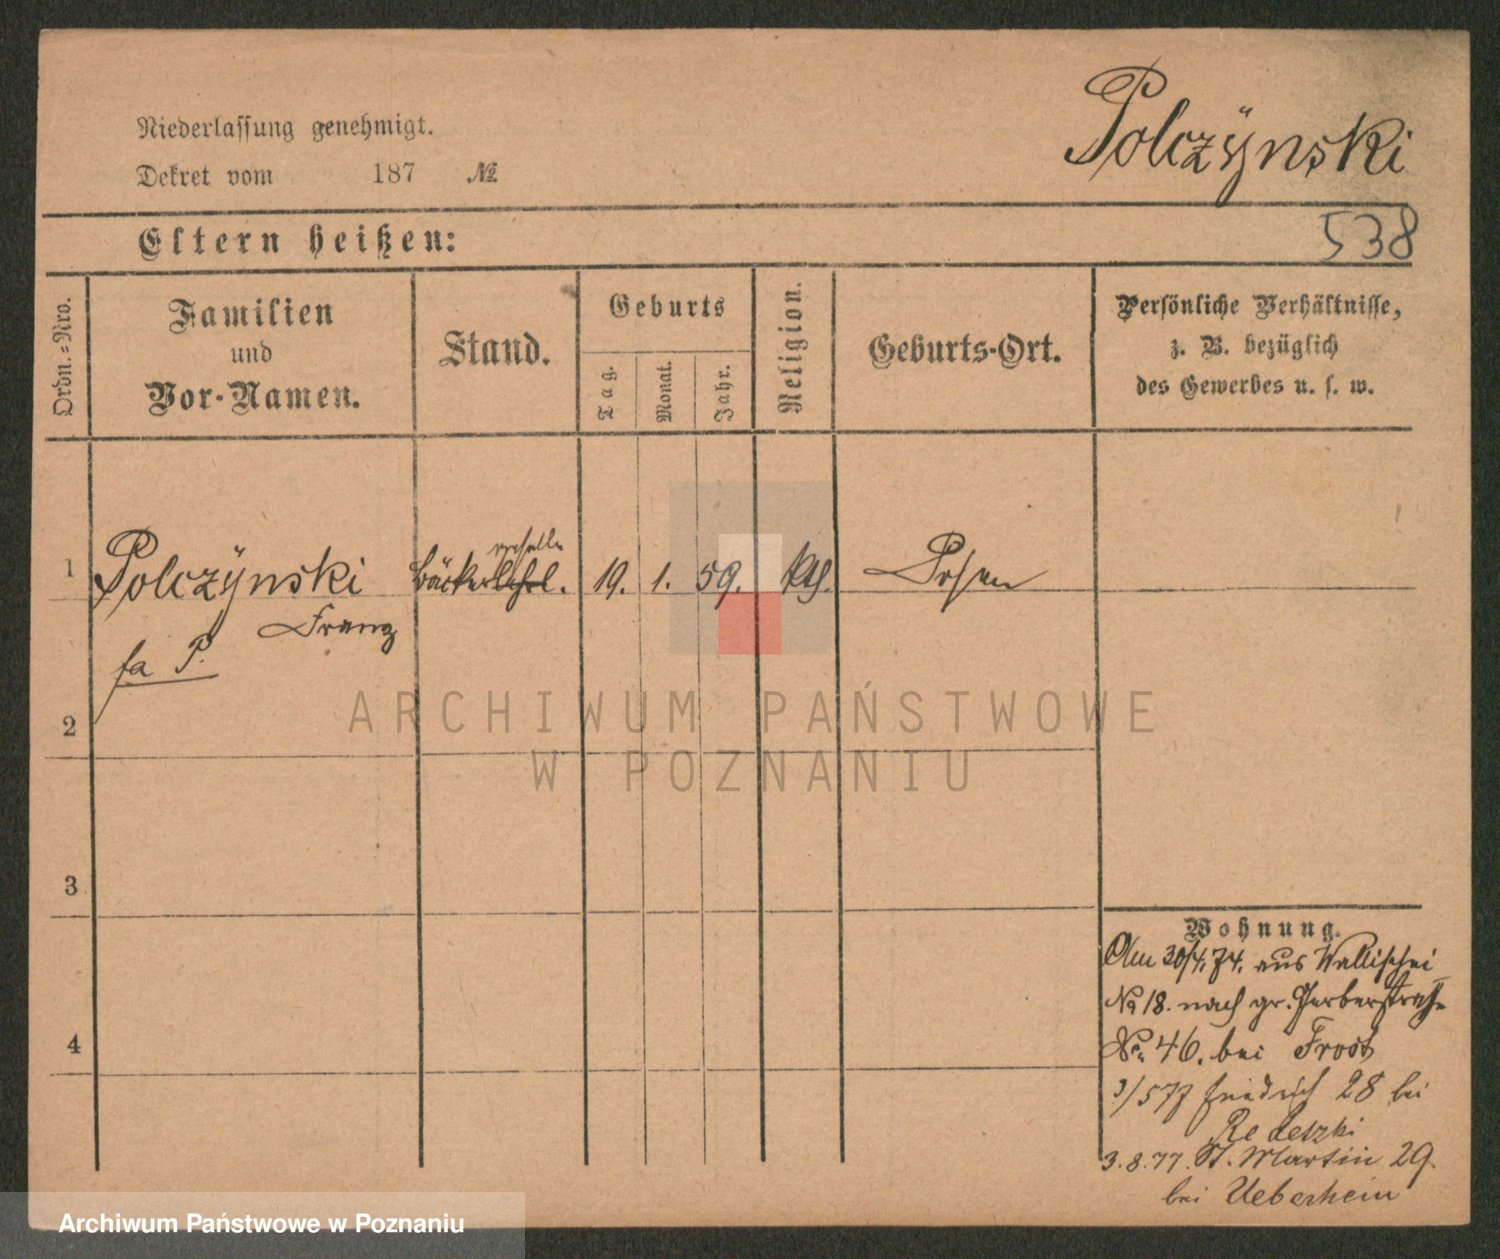 Polczÿnski
Niederlassung genehmigt.
Dekret vom 187 №
538
Eltern heißen:
Ordn.=Nro.
Familien
und
Vor-Namen.
Stand.
Geburts
Tag.
Monat.
Jahr.
Religion.
Geburts-Ort.
Persönliche Verhältnisse,
z. B. bezüglich
des Gewerbes u. s. w.
geselle
1 Polczÿnski Bäckerlehrl. 19. 1. 59. kth. Posen
Franz
fa P.
2
3
4
ARCHIWUM PAŃSTWOWE
W POZNANIU
Wohnung.
Am 30/4. 74. aus Wallischei
No 18. nach gr. Gerberstraße
No. 46. bei Frost
3/5 77 Friedrich 28 bei
3. 8. 77. St. Martin 29.
bei Ueberhein
Archiwum Państwowe w Poznaniu